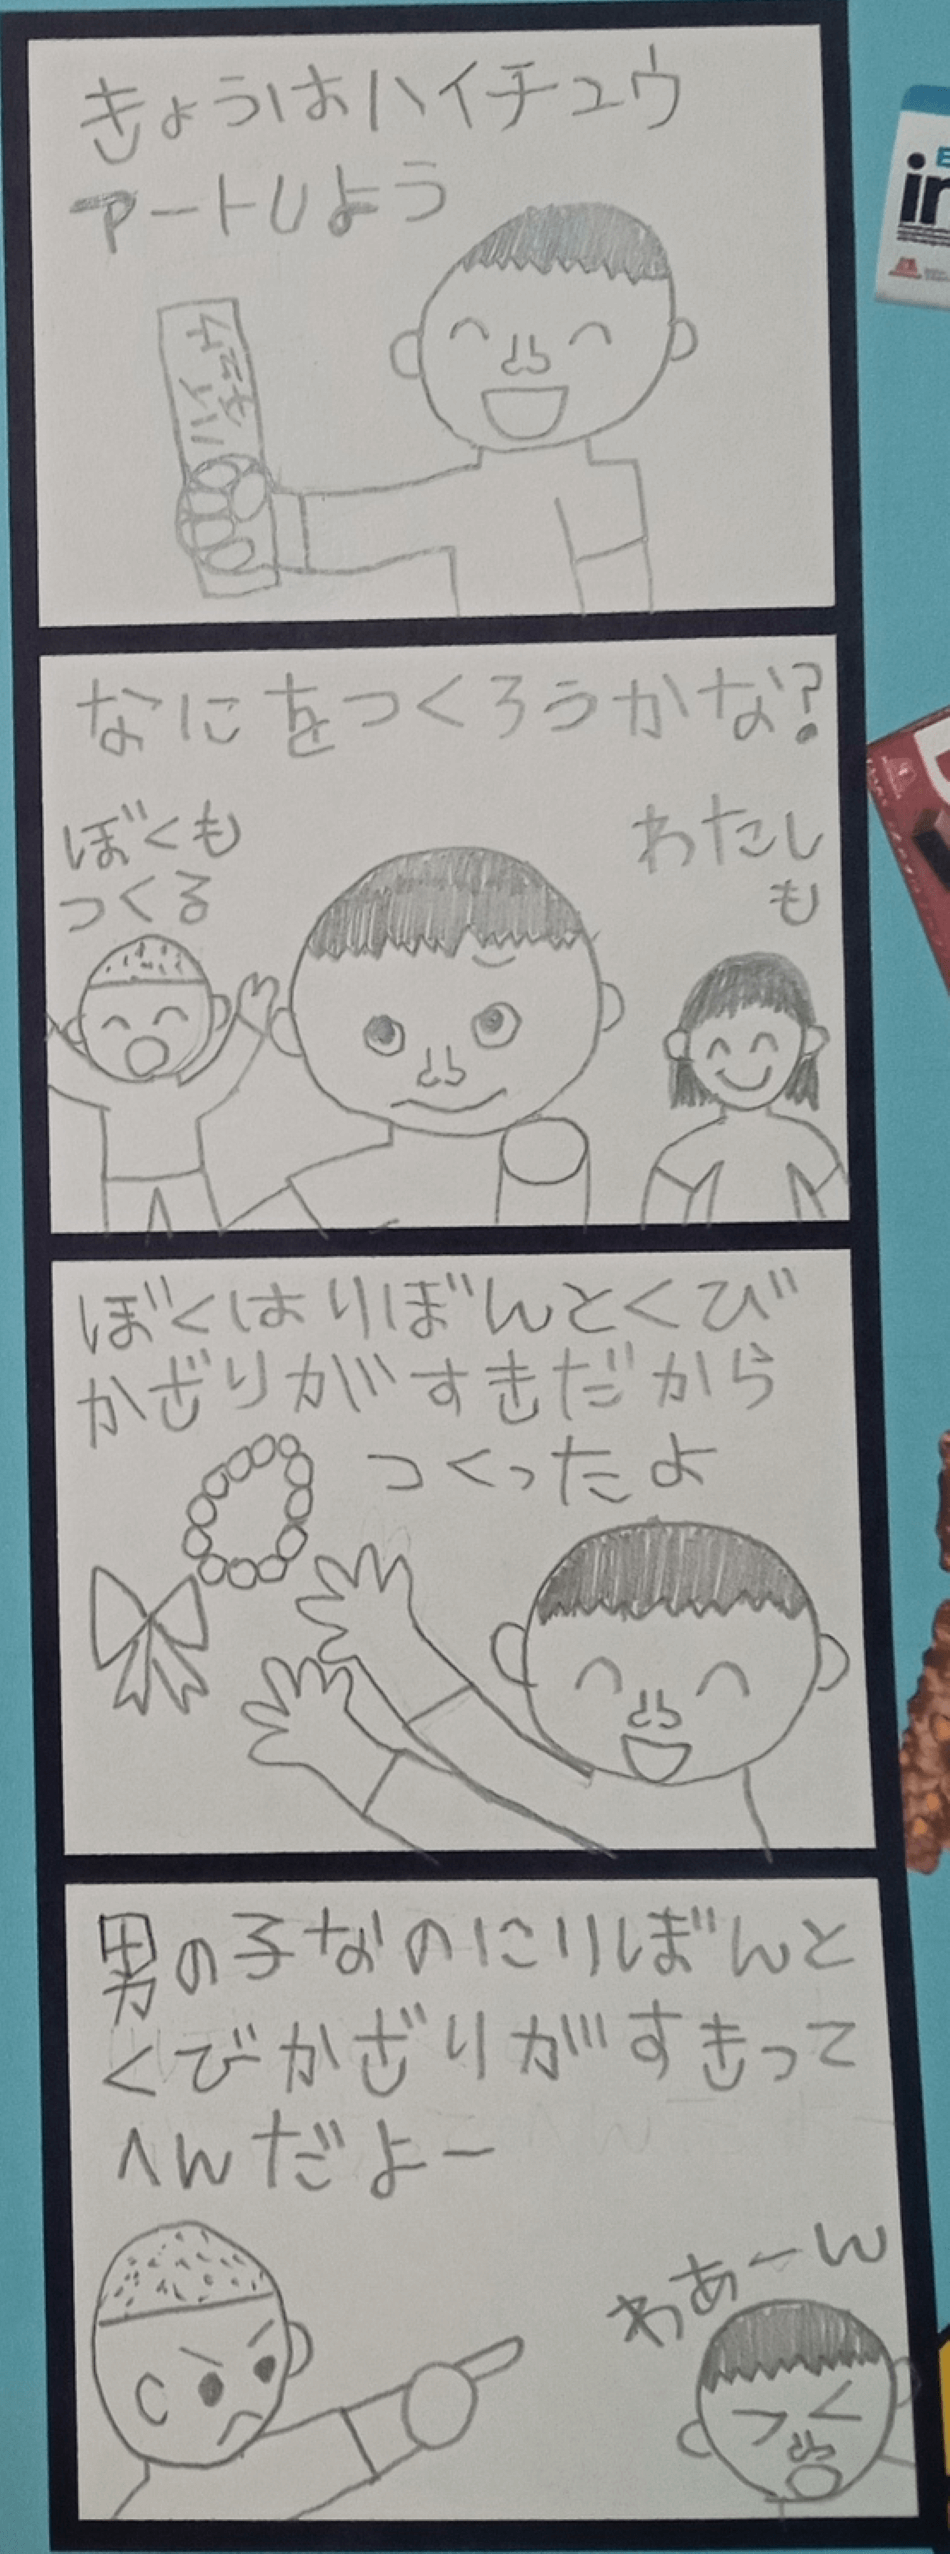 きょうはハイチュウ
アートしよう
ハイチュウ
なにをつくろうかな?
ぼくも
つくる
わたし
も
ぼくはりぼんとくび
かざりがすきだから
つくったよ
男の子なのにりぼんと
くびかざりがすきって
へんだよー
わあーん
in